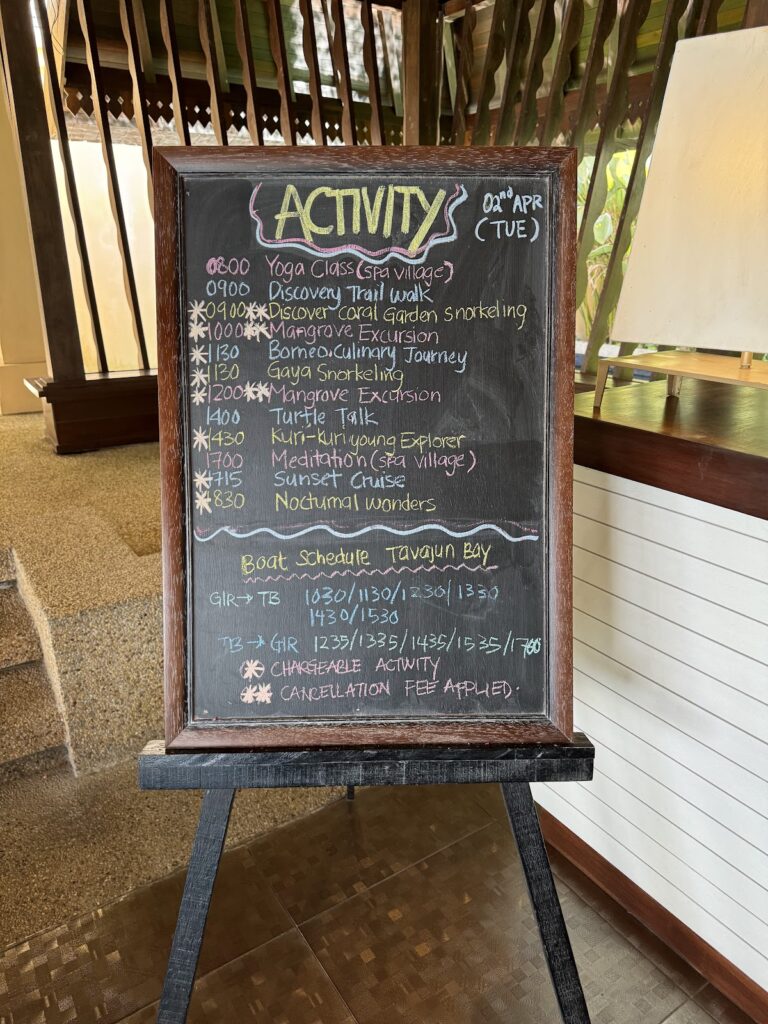 ACTIVITY
02nd APR
(TUE)
0800 Yoga Class (spa village)
0900 Discovery Trail walk
*0900** Discover coral Garden snorkeling
*1000** Mangrove Excursion
*1130 Borneo Culinary Journey
*1130 Gaya Snorkeling
*1200** Mangrove Excursion
1400 Turtle Talk
*1430 Kuri-Kuri young Explorer
1700 Meditation (spa village)
*1715 Sunset Cruise
*1830 Nocturnal wonders
Boat Schedule Tavajun Bay
GIR→TB 1030/1130/1230/1330
1430/1530
TB→GIR 1235/1335/1435/1535/1700
* CHARGEABLE ACTIVITY
** CANCELLATION FEE APPLIED.